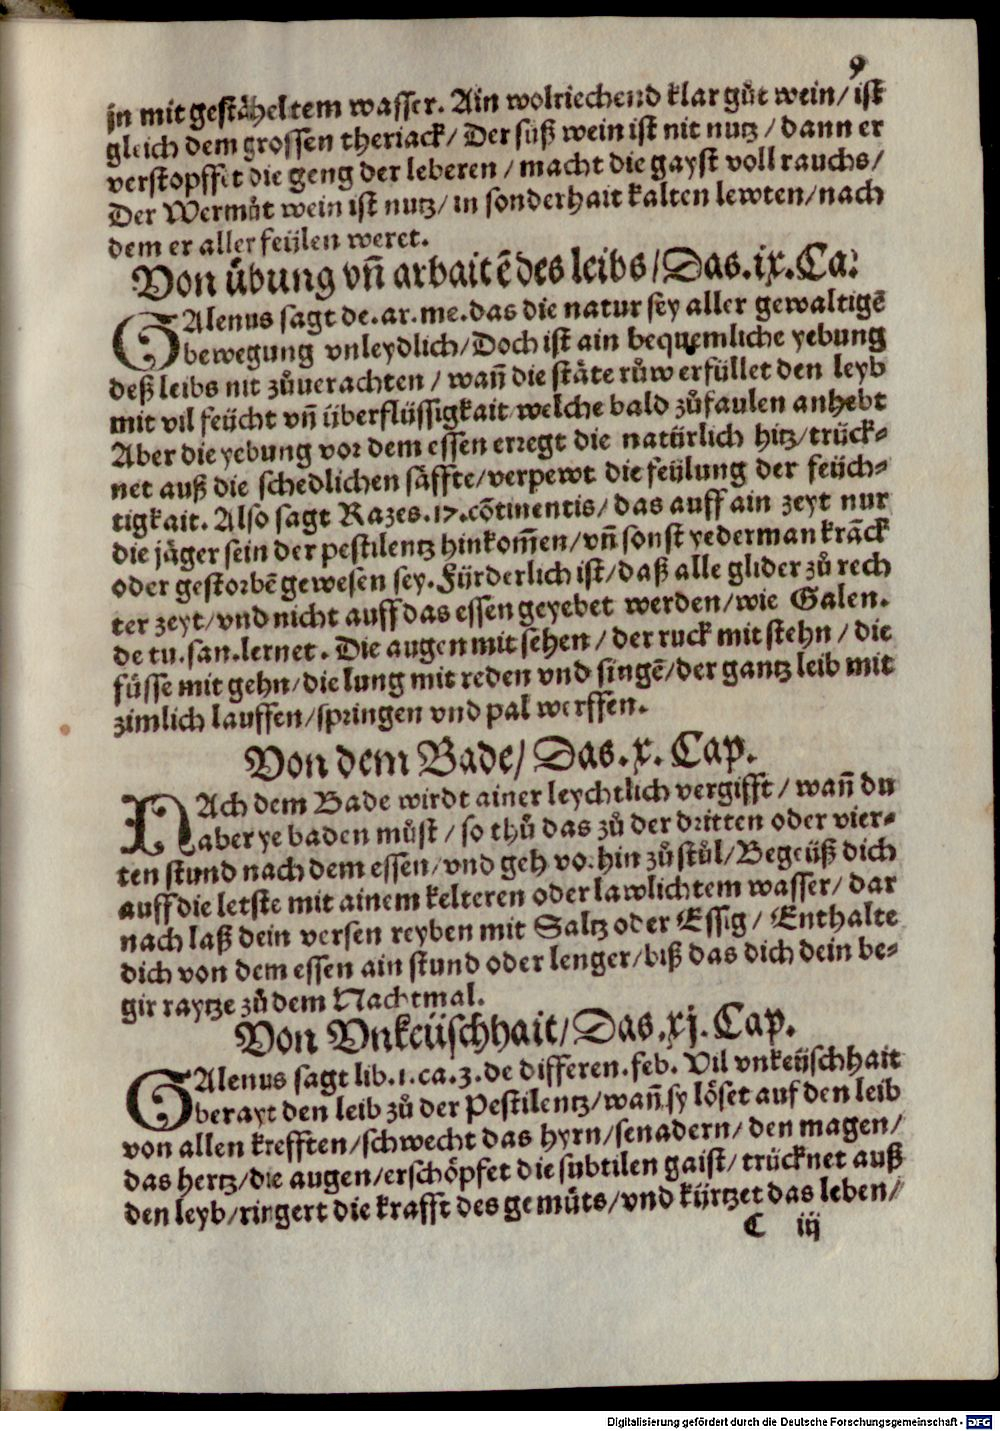 9
jn mit gestäheltem wasser. Ain wolriechend klar gůt wein/ ist
gleich dem grossen theriack/ Der süß wein ist nit nutz / dann er
verstopffet die geng der leberen / macht die gayst voll rauchs/
Der Wermůt wein ist nutz/ in sonderhait kalten lewten/ nach
dem er aller feülen weret.
Von übung vñ arbaitē des leibs/ Das.ix.Ca:
GAlenus sagt de.ar.me.das die natur sey aller gewaltigē
bewegung vnleydlich/ Doch ist ain bequemliche yebung
deß leibs nit zůuerachten / wañ die stäte růw erfüllet den leyb
mit vil feücht vñ überflüssigkait/ welche bald zůfaulen anhebt
Aber die yebung vor dem essen erregt die natürlich hitz/ trück-
net auß die schedlichen säffte/ verpewt die feülung der feüch-
tigkait. Also sagt Razes.17.cōtinentis/ das auff ain zeyt nur
die jäger sein der pestilentz hinkom̄en/ vñ sonst yederman krāck
oder gestorbē gewesen sey. Fürderlich ist/ daß alle glider zů rech
ter zeyt/ vnd nicht auff das essen geyebet werden/ wie Galen.
de tu.san.lernet. Die augen mit sehen / der ruck mit stehn / die
füsse mit gehn/ die lung mit reden vnd singē/ der gantz leib mit
zimlich lauffen/ springen vnd pal werffen.
Von dem Bade/ Das.x.Cap.
NAch dem Bade wirdt ainer leychtlich vergifft / wañ du
aber ye baden můst / so thů das zů der dritten oder vier-
ten stund nach dem essen/ vnd geh vorhin zů stůl/ Begeüß dich
auff die letste mit ainem kelteren oder lawlichtem wasser/ dar
nach laß dein versen reyben mit Saltz oder Essig/ Enthalte
dich von dem essen ain stund oder lenger/ biß das dich dein be-
gir raytze zů dem Nachtmal.
Von Vnkeüschhait/ Das.xj.Cap.
GAlenus sagt lib.1.ca.3.de differen.feb. Vil vnkeüschhait
berayt den leib zů der Pestilentz/ wañ sy löset auf den leib
von allen krefften/ schwecht das hyrn/ senadern/ den magen/
das hertz/ die augen/ erschöpfet die subtilen gaist/ trücknet auß
den leyb/ ringert die krafft des gemüts/ vnd kürtzet das leben/
C iij
Digitalisierung gefördert durch die Deutsche Forschungsgemeinschaft - DFG